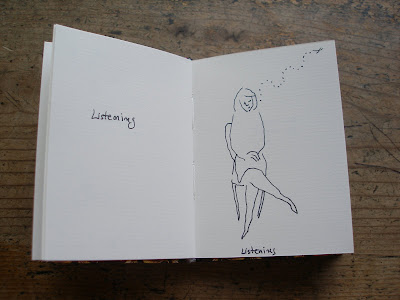 Listening
Listening